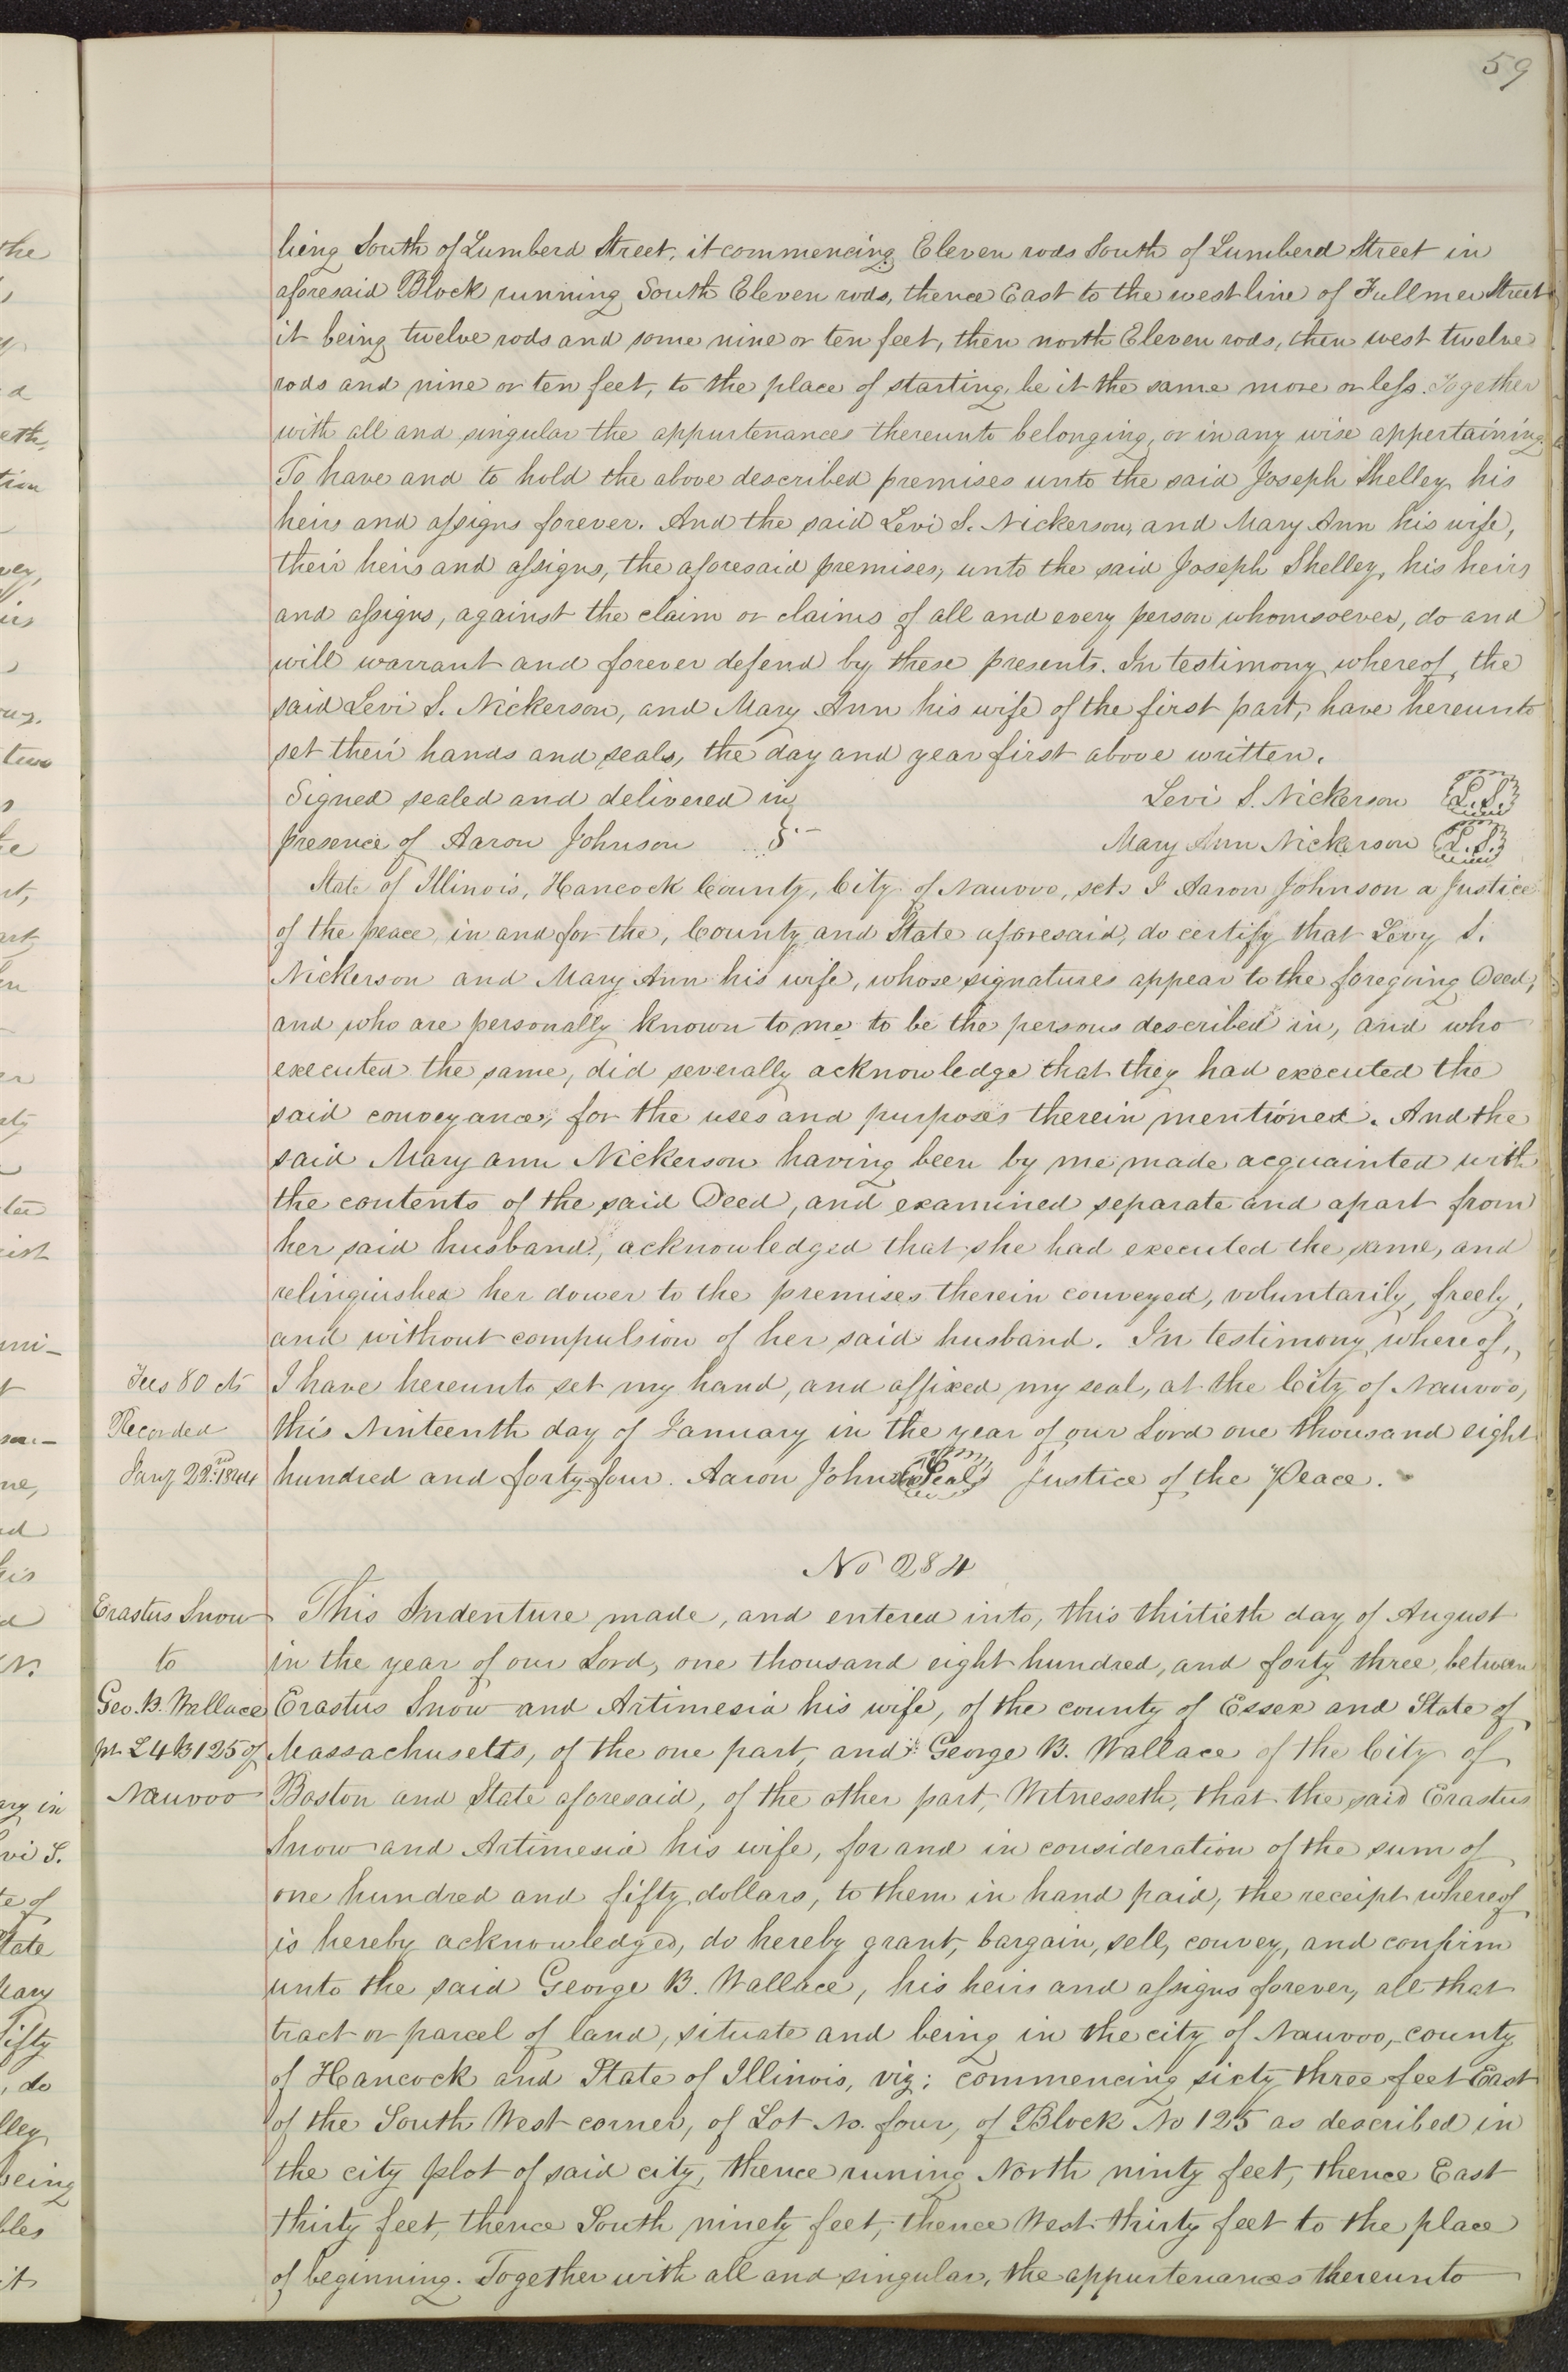 59
lieng South of Lumberd Street, it commencing Eleven rods South of Lumberd Street in
aforesaid Block running South Eleven rods, thence East to the west line of Fullmer Street
it being twelve rods and some nine or ten feet, then north Eleven rods, then west twelve
rods and nine or ten feet, to the place of starting, be it the same more or less. Together
with all and singular the appurtenances thereunto belonging, or in any wise appertaining.
To have and to hold the above described premises unto the said Joseph Shelley his
heirs and assigns forever. And the said Levi S. Nickerson, and Mary Ann his wife,
their heirs and assigns, the aforesaid premises, unto the said Joseph Shelley, his heirs
and assigns, against the claim or claims of all and every person whomsoever, do and
will warrant and forever defend by these presents. In testimony whereof, the
said Levi S. Nickerson, and Mary Ann his wife of the first part, have hereunto
set their hands and seals, the day and year first above written.
Signed sealed and delivered in Levi S. Nickerson L.S.
presence of Aaron Johnson Mary Ann Nickerson L.S.
State of Illinois, Hancock County, City of Nauvoo, sct. I Aaron Johnson a Justice
of the peace, in and for the, County and State aforesaid, do certify that Levy S.
Nickerson and Mary Ann his wife, whose signatures appear to the foregoing Deed,
and who are personally known to me to be the persons described in, and who
executed the same, did severally acknowledge that they had executed the
said conveyance, for the uses and purposes therein mentioned. And the
said Mary ann Nickerson having been by me made acquainted with
the contents of the said Deed, and examined separate and apart from
her said husband, acknowledged that she had executed the same, and
relinquished her dower to the premises therein conveyed, voluntarily, freely,
and without compulsion of her said husband. In testimony whereof,
Fees 80 cts I have hereunto set my hand, and affixed my seal, at the City of Nauvoo,
Recorded this Ninteenth day of January in the year of our Lord one thousand eight
Jany 22nd 1844 hundred and forty-four. Aaron Johnson Seal Justice of the Peace.
No 284
Erastus Snow This Indenture made, and entered into, this thirtieth day of August
to in the year of our Lord, one thousand eight hundred, and forty three, between
Geo. B. Wallace Erastus Snow and Artimesia his wife, of the county of Essex and State of
pt L 4 B 125 of Massachusetts, of the one part, and George B. Wallace of the City of
Nauvoo Boston and State aforesaid, of the other part, Witnesseth, that the said Erastus
Snow and Artimesia his wife, for and in consideration of the sum of
one hundred and fifty dollars, to them in hand paid, the receipt whereof
is hereby acknowledged, do hereby grant, bargain, sell, convey, and confirm
unto the said George B. Wallace, his heirs and assigns forever, all that
tract or parcel of land, situate and being in the city of Nauvoo, county
of Hancock and State of Illinois, viz: commencing sixty three feet East
of the South West corner, of Lot No. four, of Block No 125 as described in
the city plot of said city, thence runing North ninty feet, thence East
thirty feet, thence South ninety feet, thence West thirty feet to the place
of beginning. Together with all and singular, the appurtenances thereunto